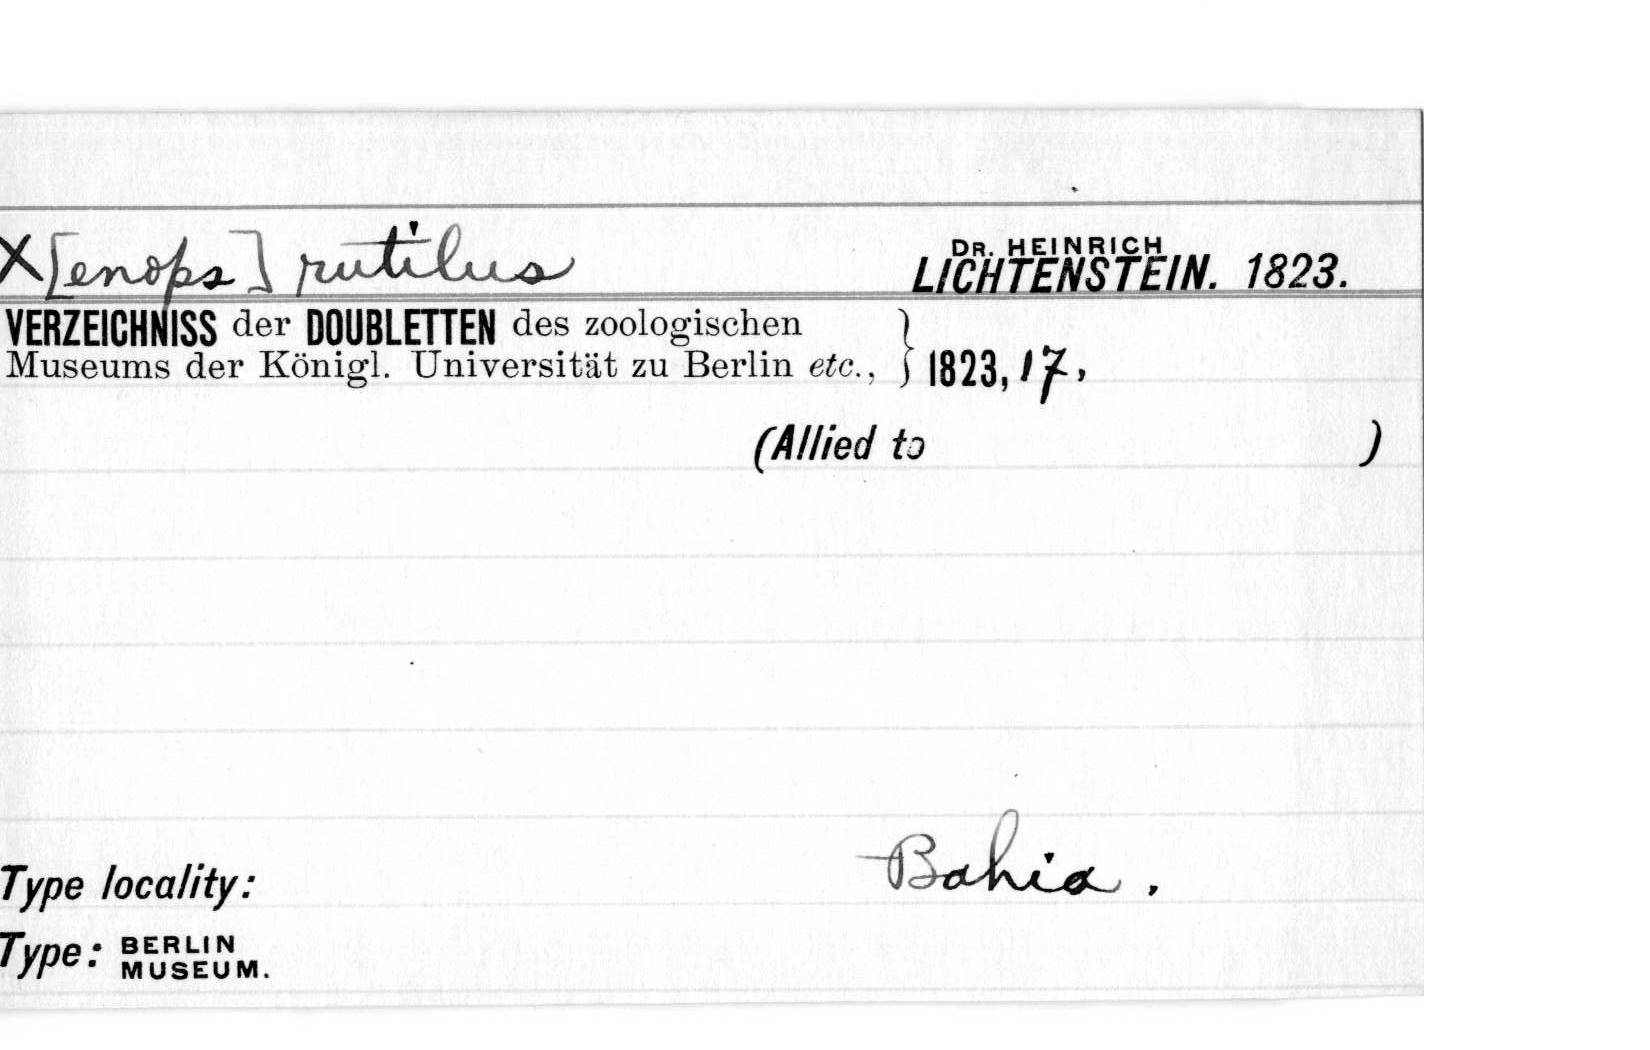 X[enops] rutilus
DR. HEINRICH
LICHTENSTEIN. 1823.
VERZEICHNISS der DOUBLETTEN des zoologischen
Museums der Königl. Universität zu Berlin etc., } 1823, 17,
(Allied to )
Bahia.
Type locality:
Type: BERLIN
MUSEUM.